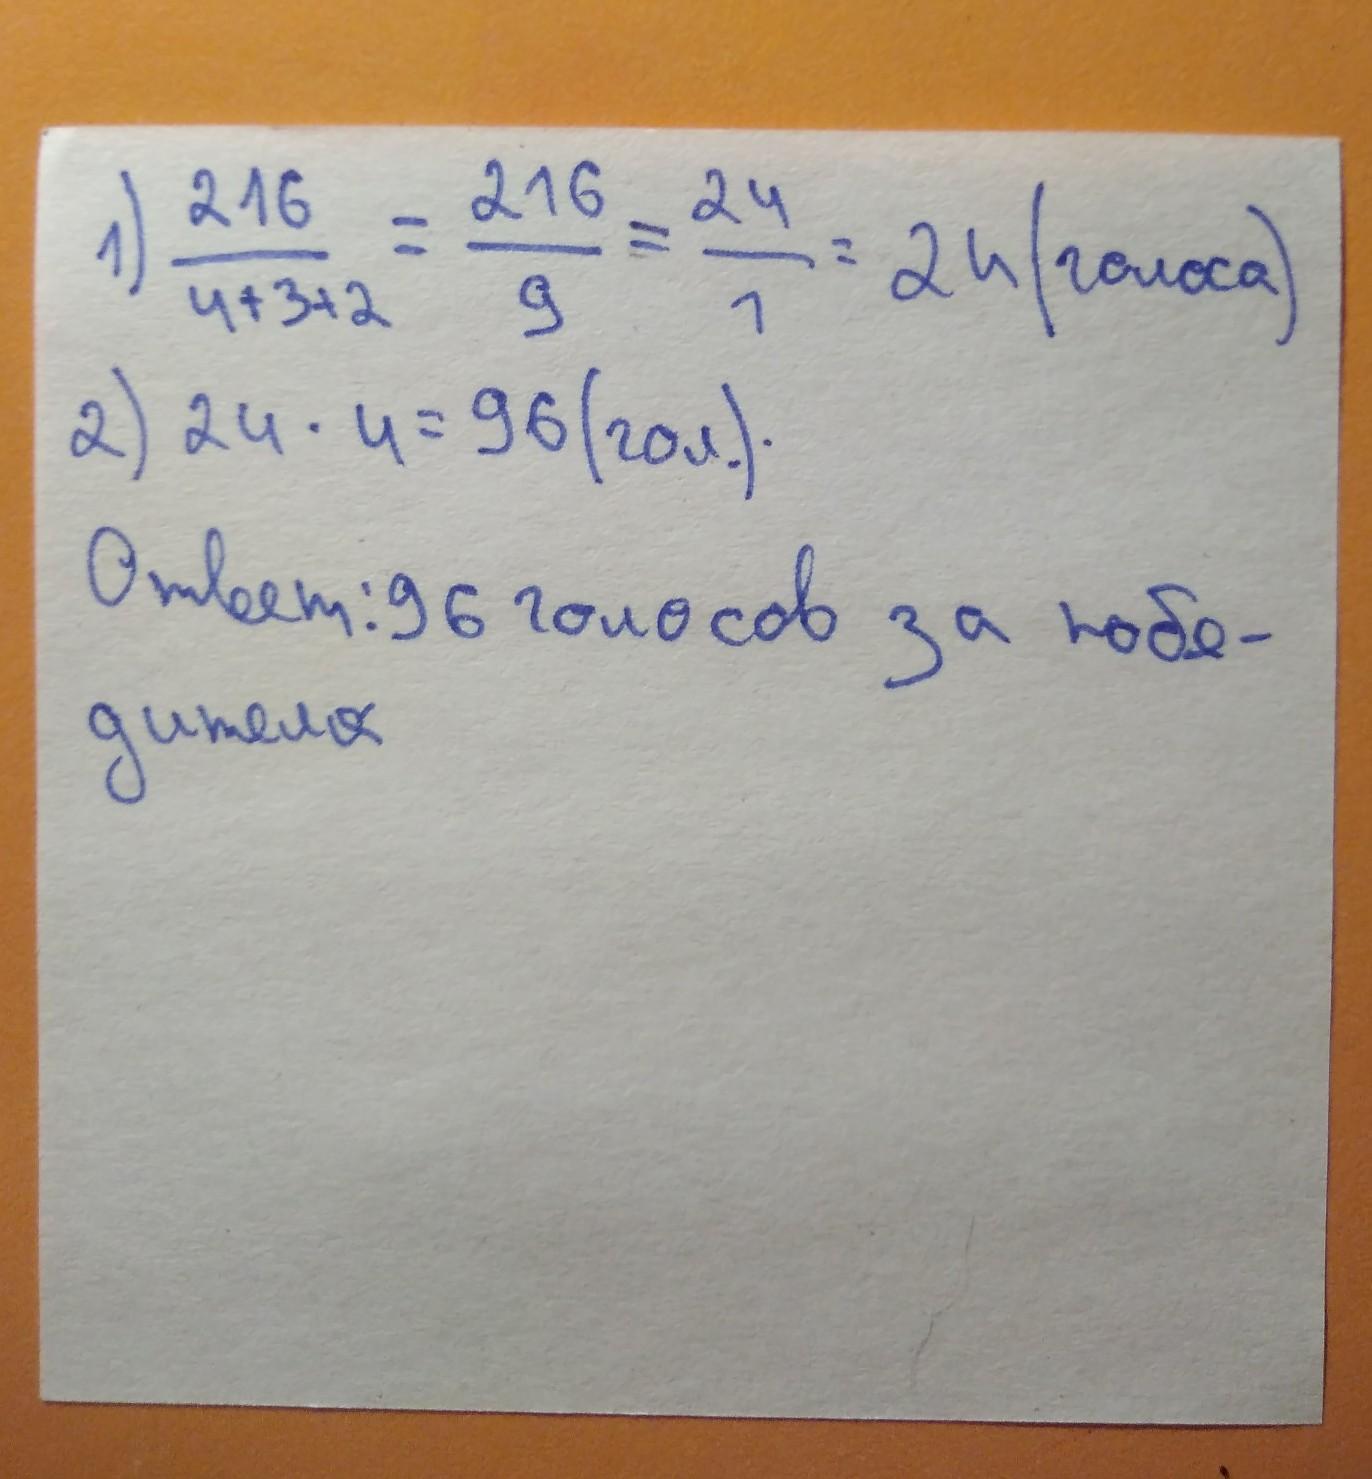 1) 216/(4+3+2) = 216/9 = 24/1 = 24 (голоса)
2) 24 · 4 = 96 (гол.).
Ответ: 96 голосов за побе-
дителя